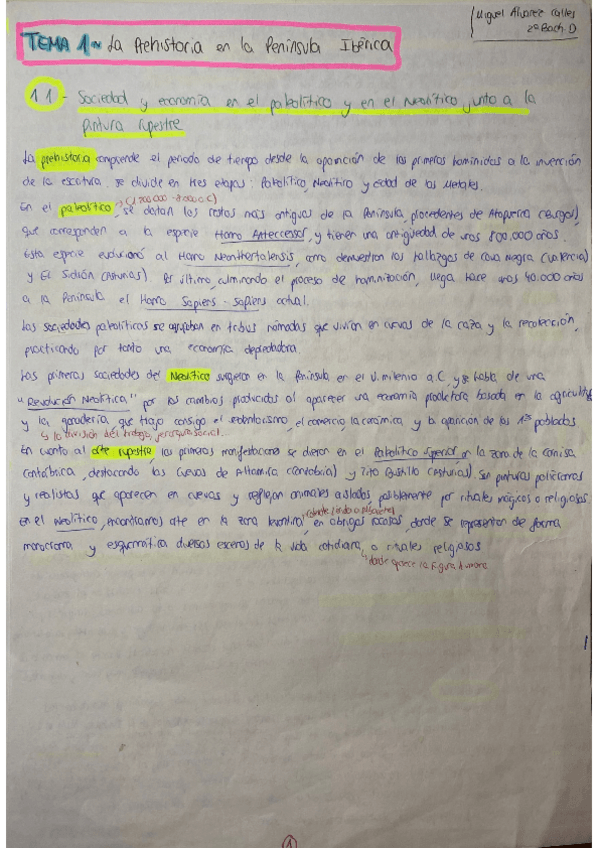 Miguel Álvarez Calles
2º Bach. D
TEMA 1 ~ La Prehistoria en la Península Ibérica
1.1 - Sociedad y economía en el paleolítico y en el neolítico junto a la
pintura rupestre
La prehistoria comprende el periodo de tiempo desde la aparición de los primeros homínidos a la invención
de la escritura. Se divide en tres etapas: Paleolítico, Neolítico y edad de los Metales.
En el paleolítico, se datan los restos más antiguos de la Península, procedentes de Atapuerca (Burgos),
que corresponden a la especie Homo Antecessor, y tienen una antigüedad de unos 800.000 años.
Esta especie evolucionó al Homo Neanthertalensis, como demuestran los hallazgos de cova negra (Valencia)
y El Sidrón (Asturias). Por último, culminando el proceso de hominización, llega hace unos 40.000 años
a la Península el Homo Sapiens-sapiens actual.
Las sociedades paleolíticas se agrupaban en tribus nómadas que vivían en cuevas de la caza y la recolección,
practicando por tanto una economía depredadora.
Las primeras sociedades del Neolítico surgieron en la Península en el V milenio a.C, y se habla de una
"Revolución Neolítica" por los cambios producidos al aparecer una economía productora basada en la agricultura
y la ganadería, que trajo consigo el sedentarismo, el comercio, la cerámica y la aparición de los 1ºs poblados
↳ la división del trabajo, jerarquía social...
En cuanto al arte rupestre, las primeras manifestaciones se dieron en el Paleolítico superior, en la zona de la cornisa
cantábrica, destacando las cuevas de Altamira (cantabria) y Tito Bustillo (Asturias). Son pinturas policromas
y realistas que aparecen en cuevas y reflejan animales aislados, posiblemente por rituales mágicos o religiosos.
En el Neolítico, encontramos arte en la zona levantina, en abrigos rocosos, donde se representan de forma
monocroma y esquemática diversas escenas de la vida cotidiana, o rituales religiosos
↳ donde aparece la figura humana
1